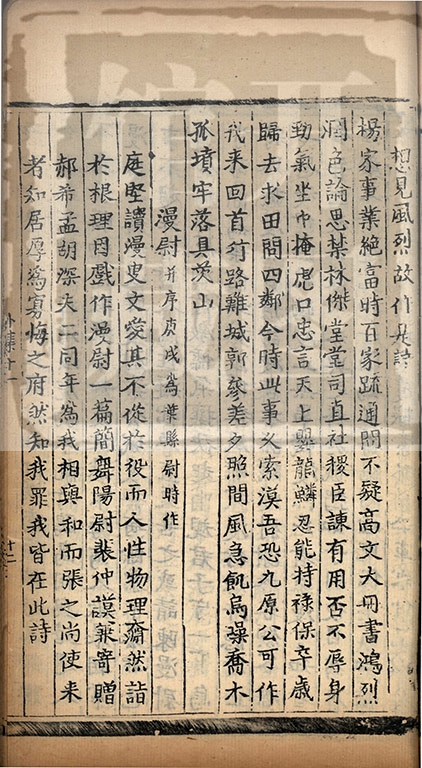 想見風烈故作是詩
楊家事業絶當時百家疏通問不疑高文大冊書鴻烈
潤色論思禁林傑堂堂司直社稷臣諫有用否不辱身
勁氣坐巾掩虎口忠言天上嬰龍鱗忍能持祿保卒歲
歸去求田問四鄰今時此事又索漠吾恐九原公可作
我来回首行路難城郭參差夕照間風急飢烏噪喬木
孤墳牢落具茨山
漫尉并序庚戌為葉縣尉時作
庭堅讀漫叟文愛其不從於役而人性物理齋然詣
於根理因戲作漫尉一篇簡舞陽尉裴仲謨兼寄贈
郝希孟胡深夫二同年為我相與和而張之尚使来
者知居厚為寡悔之府然知我罪我皆在此詩
外集十一
十二